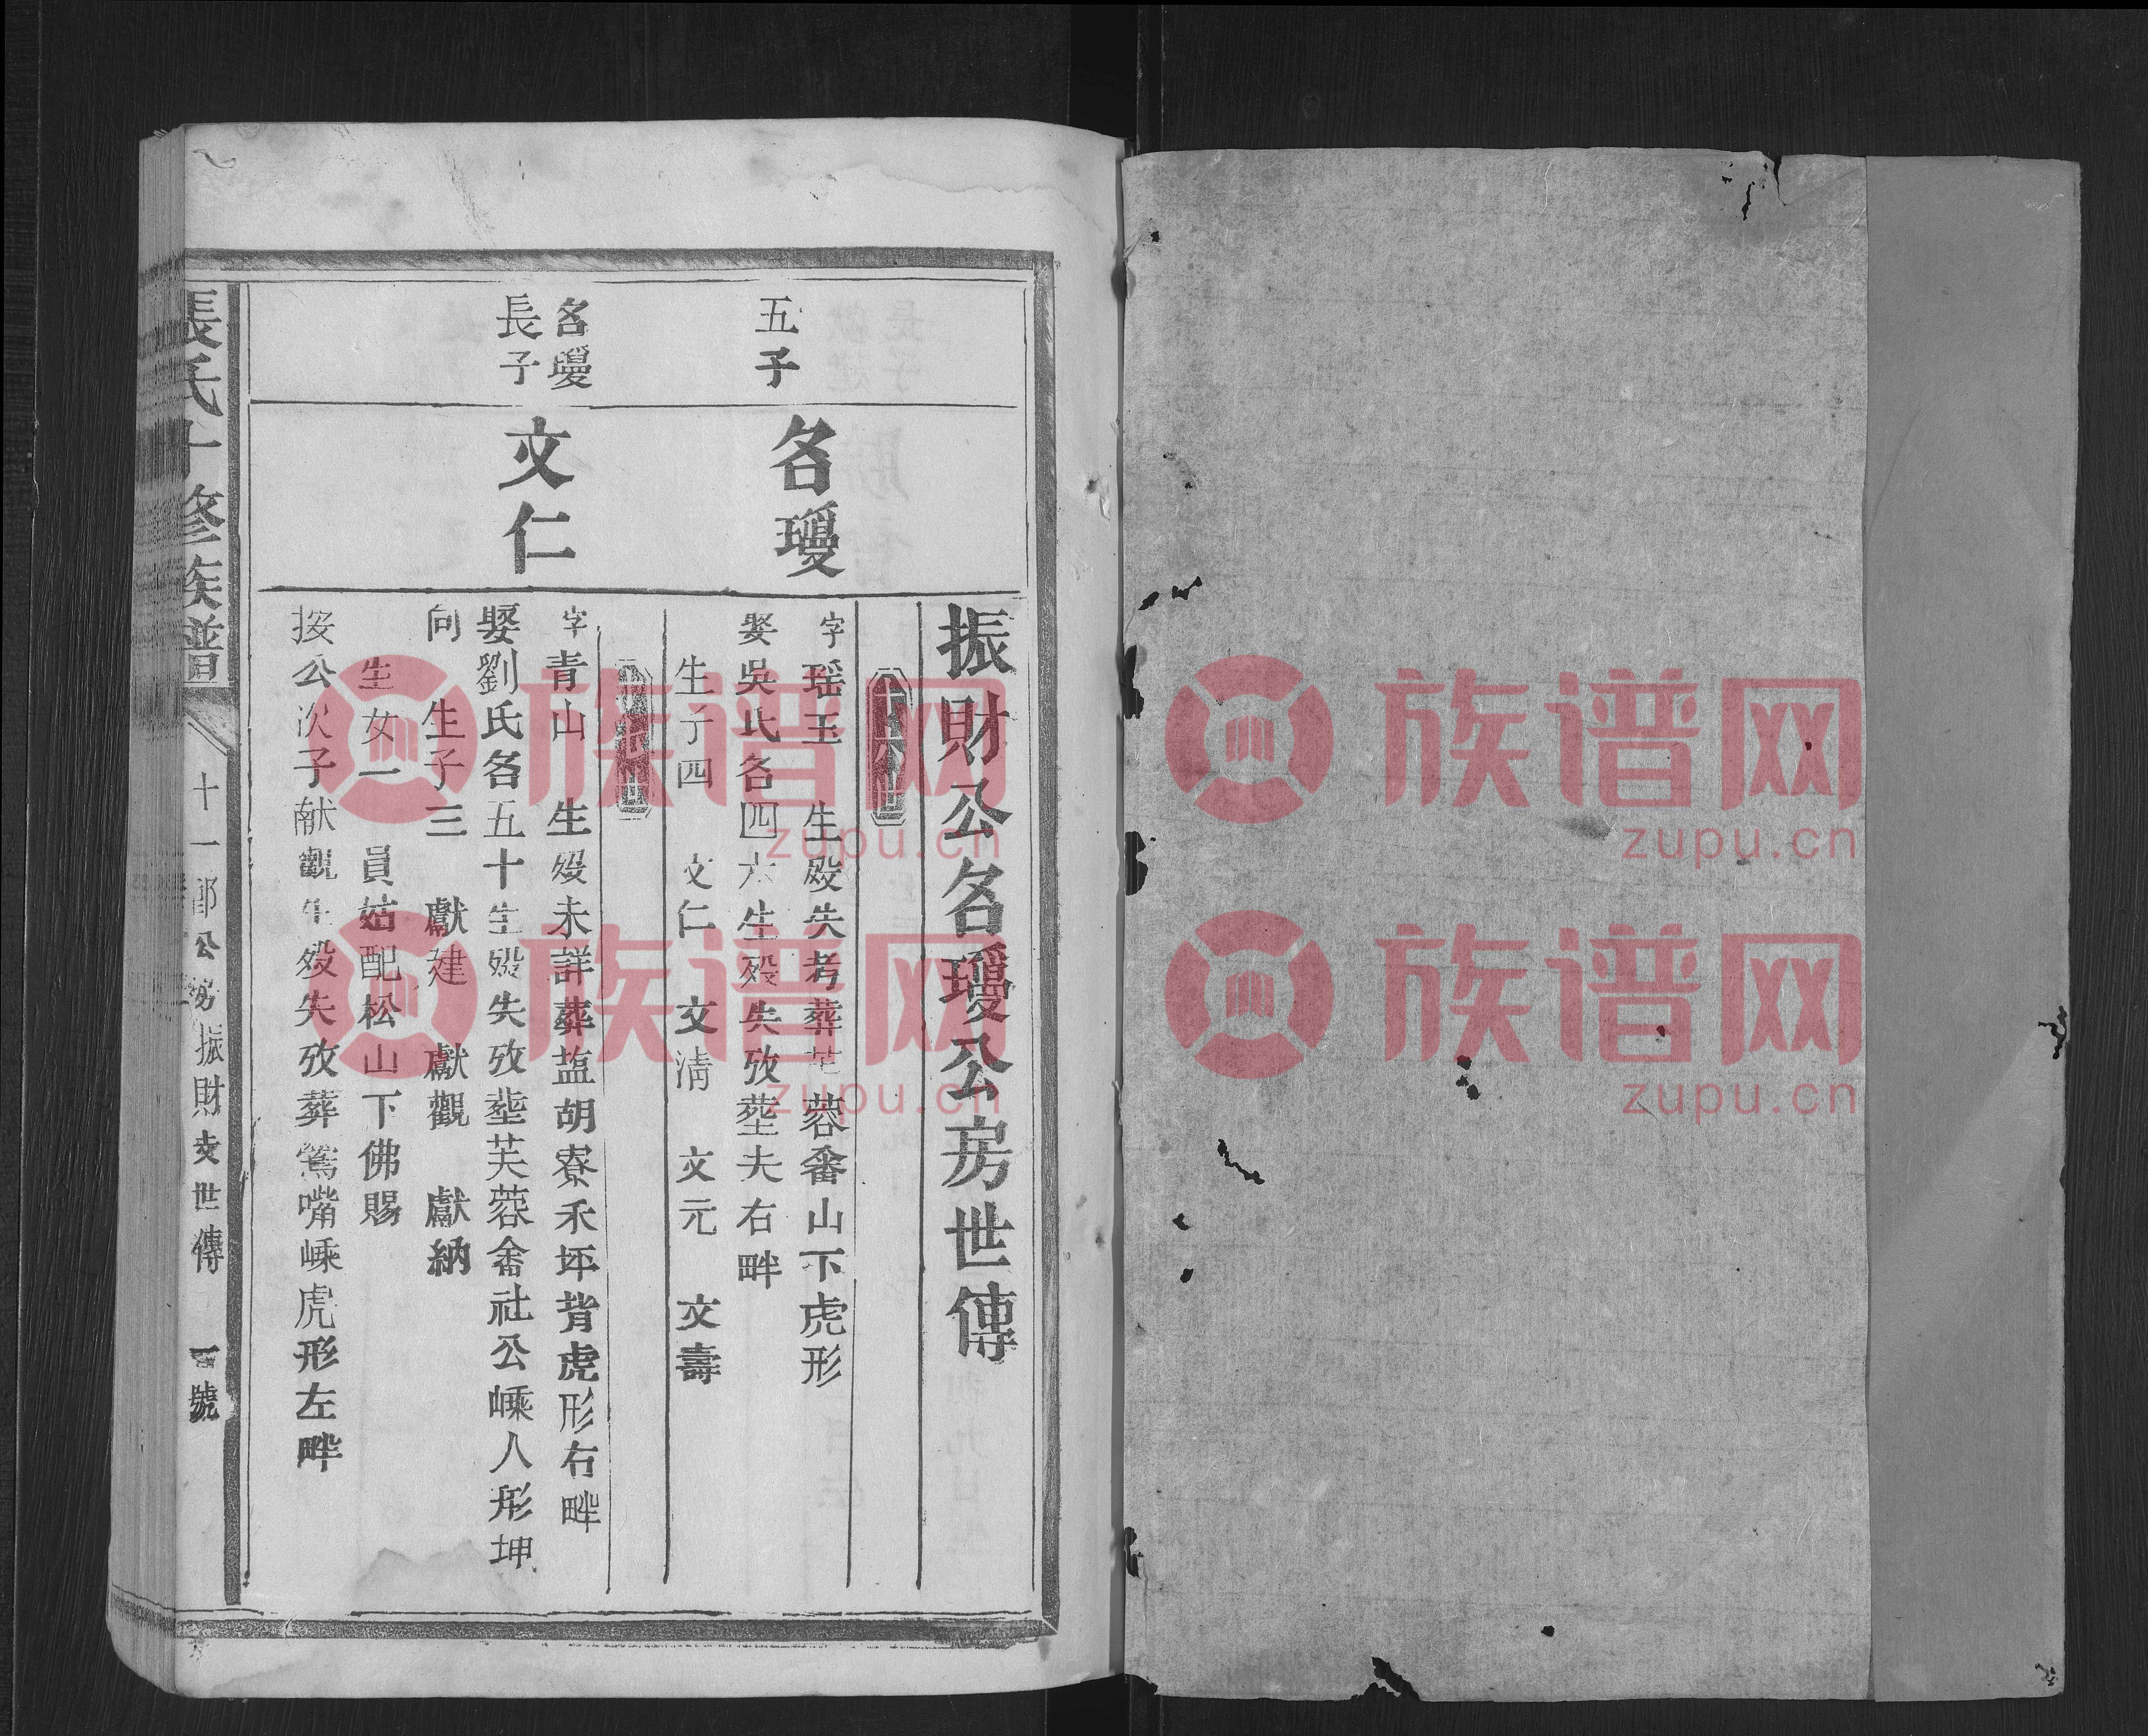 振財公名璦公房世傳
五子
名璦
字瑶玉 生殁失考葬芒蓉畬山下虎形
娶吳氏名四六生殁失攷塟夫右畔
生子四 文仁 文淸 文元 文壽
名璦
長子
文仁
字青山 生殁未詳葬塩胡寮禾坪背虎形右畔
娶劉氏名五十生殁失攷塟芙蓉畬社公㟙人形坤
向 生子三 獻建 獻觀 獻納
生女一 員姑配松山下佛賜
按公次子献觀生殁失攷葬鶯嘴㟙虎形左畔
張氏十修族譜
十一郎公房振財支世傳
一號
族谱网
zupu.cn
族谱网
zupu.cn
族谱网
zupu.cn
族谱网
zupu.cn